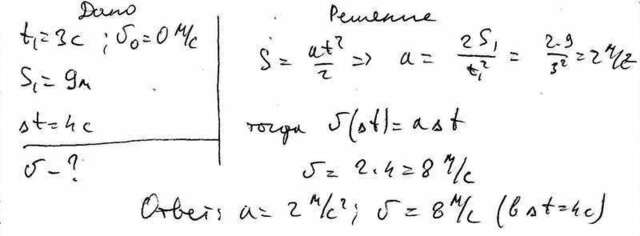 Дано
t₁=3с ; υ₀=0 м/с
S₁=9м
Δt=4с
υ-?
Решение
S = at²/2 => a = 2S₁/t₁² = 2·9/3² = 2 м/с²
тогда υ(Δt)=aΔt
υ= 2·4=8 м/с
Ответ: a= 2 м/с²; υ= 8 м/с (в Δt=4с)